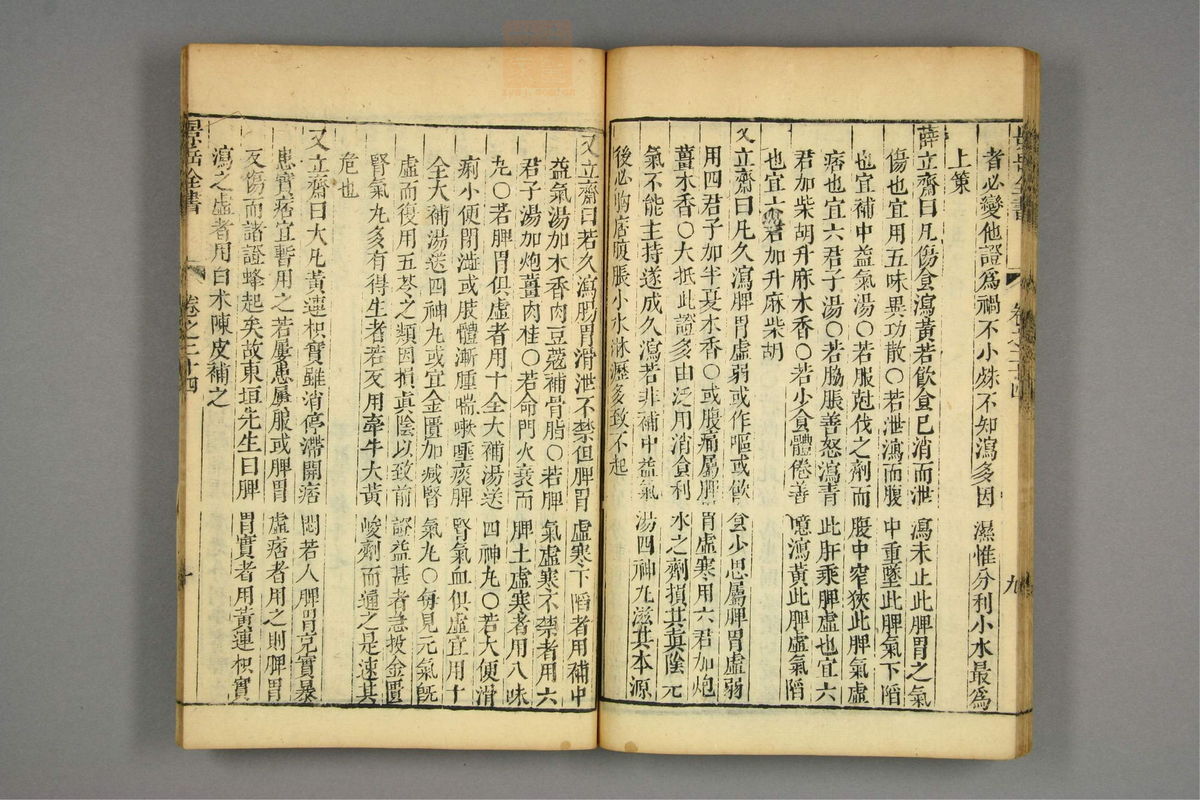 景岳全書 卷之二十四 九
者必變他證為禍不小殊不知瀉多因濕惟分利小水最為
上策
薛立齋曰凡傷食瀉黃若飲食已消而泄瀉未止此脾胃之氣
傷也宜用五味異功散○若泄瀉而腹中重墜此脾氣下陷
也宜補中益氣湯○若服尅伐之劑而腹中窄狹此脾氣虛
痞也宜六君子湯○若脇脹善怒瀉青此肝乘脾虛也宜六
君加柴胡升麻木香○若少食體倦善噫瀉黃此脾虛氣陷
也宜六君加升麻柴胡
又立齋曰凡久瀉脾胃虛弱或作嘔或飲食少思屬脾胃虛弱
用四君子加半夏木香○或腹痛屬脾胃虛寒用六君加炮
薑木香○大抵此證多由泛用消食利水之劑損其真陰元
氣不能主持遂成久瀉若非補中益氣湯四神丸滋其本源
後必胸痞腹脹小水淋瀝多致不起
又立齋曰若久瀉腸胃滑泄不禁但脾胃虛寒下陷者用補中
益氣湯加木香肉豆蔻補骨脂○若脾氣虛寒不禁者用六
君子湯加炮薑肉桂○若命門火衰而脾土虛寒者用八味
丸○若脾胃俱虛者用十全大補湯送四神丸○若大便滑
痢小便閉澁或肢體漸腫喘嗽唾痰脾腎氣血俱虛宜用十
全大補湯送四神丸或宜金匱加減腎氣丸○每見元氣旣
虛而復用五苓之類因損眞陰以致前證益甚者急投金匱
腎氣丸多有得生者若反用牽牛大黃峻劑而通之是速其
危也
又立齋曰大凡黃連枳實雖消停滯開痞悶若人脾胃充實暴
患實痞宜暫用之若屢患屢服或脾胃虛痞者用之則脾胃
反傷而諸證蜂起矣故東垣先生曰脾胃實者用黃連枳實
瀉之虛者用白朮陳皮補之
景岳全書 卷之二十四 十